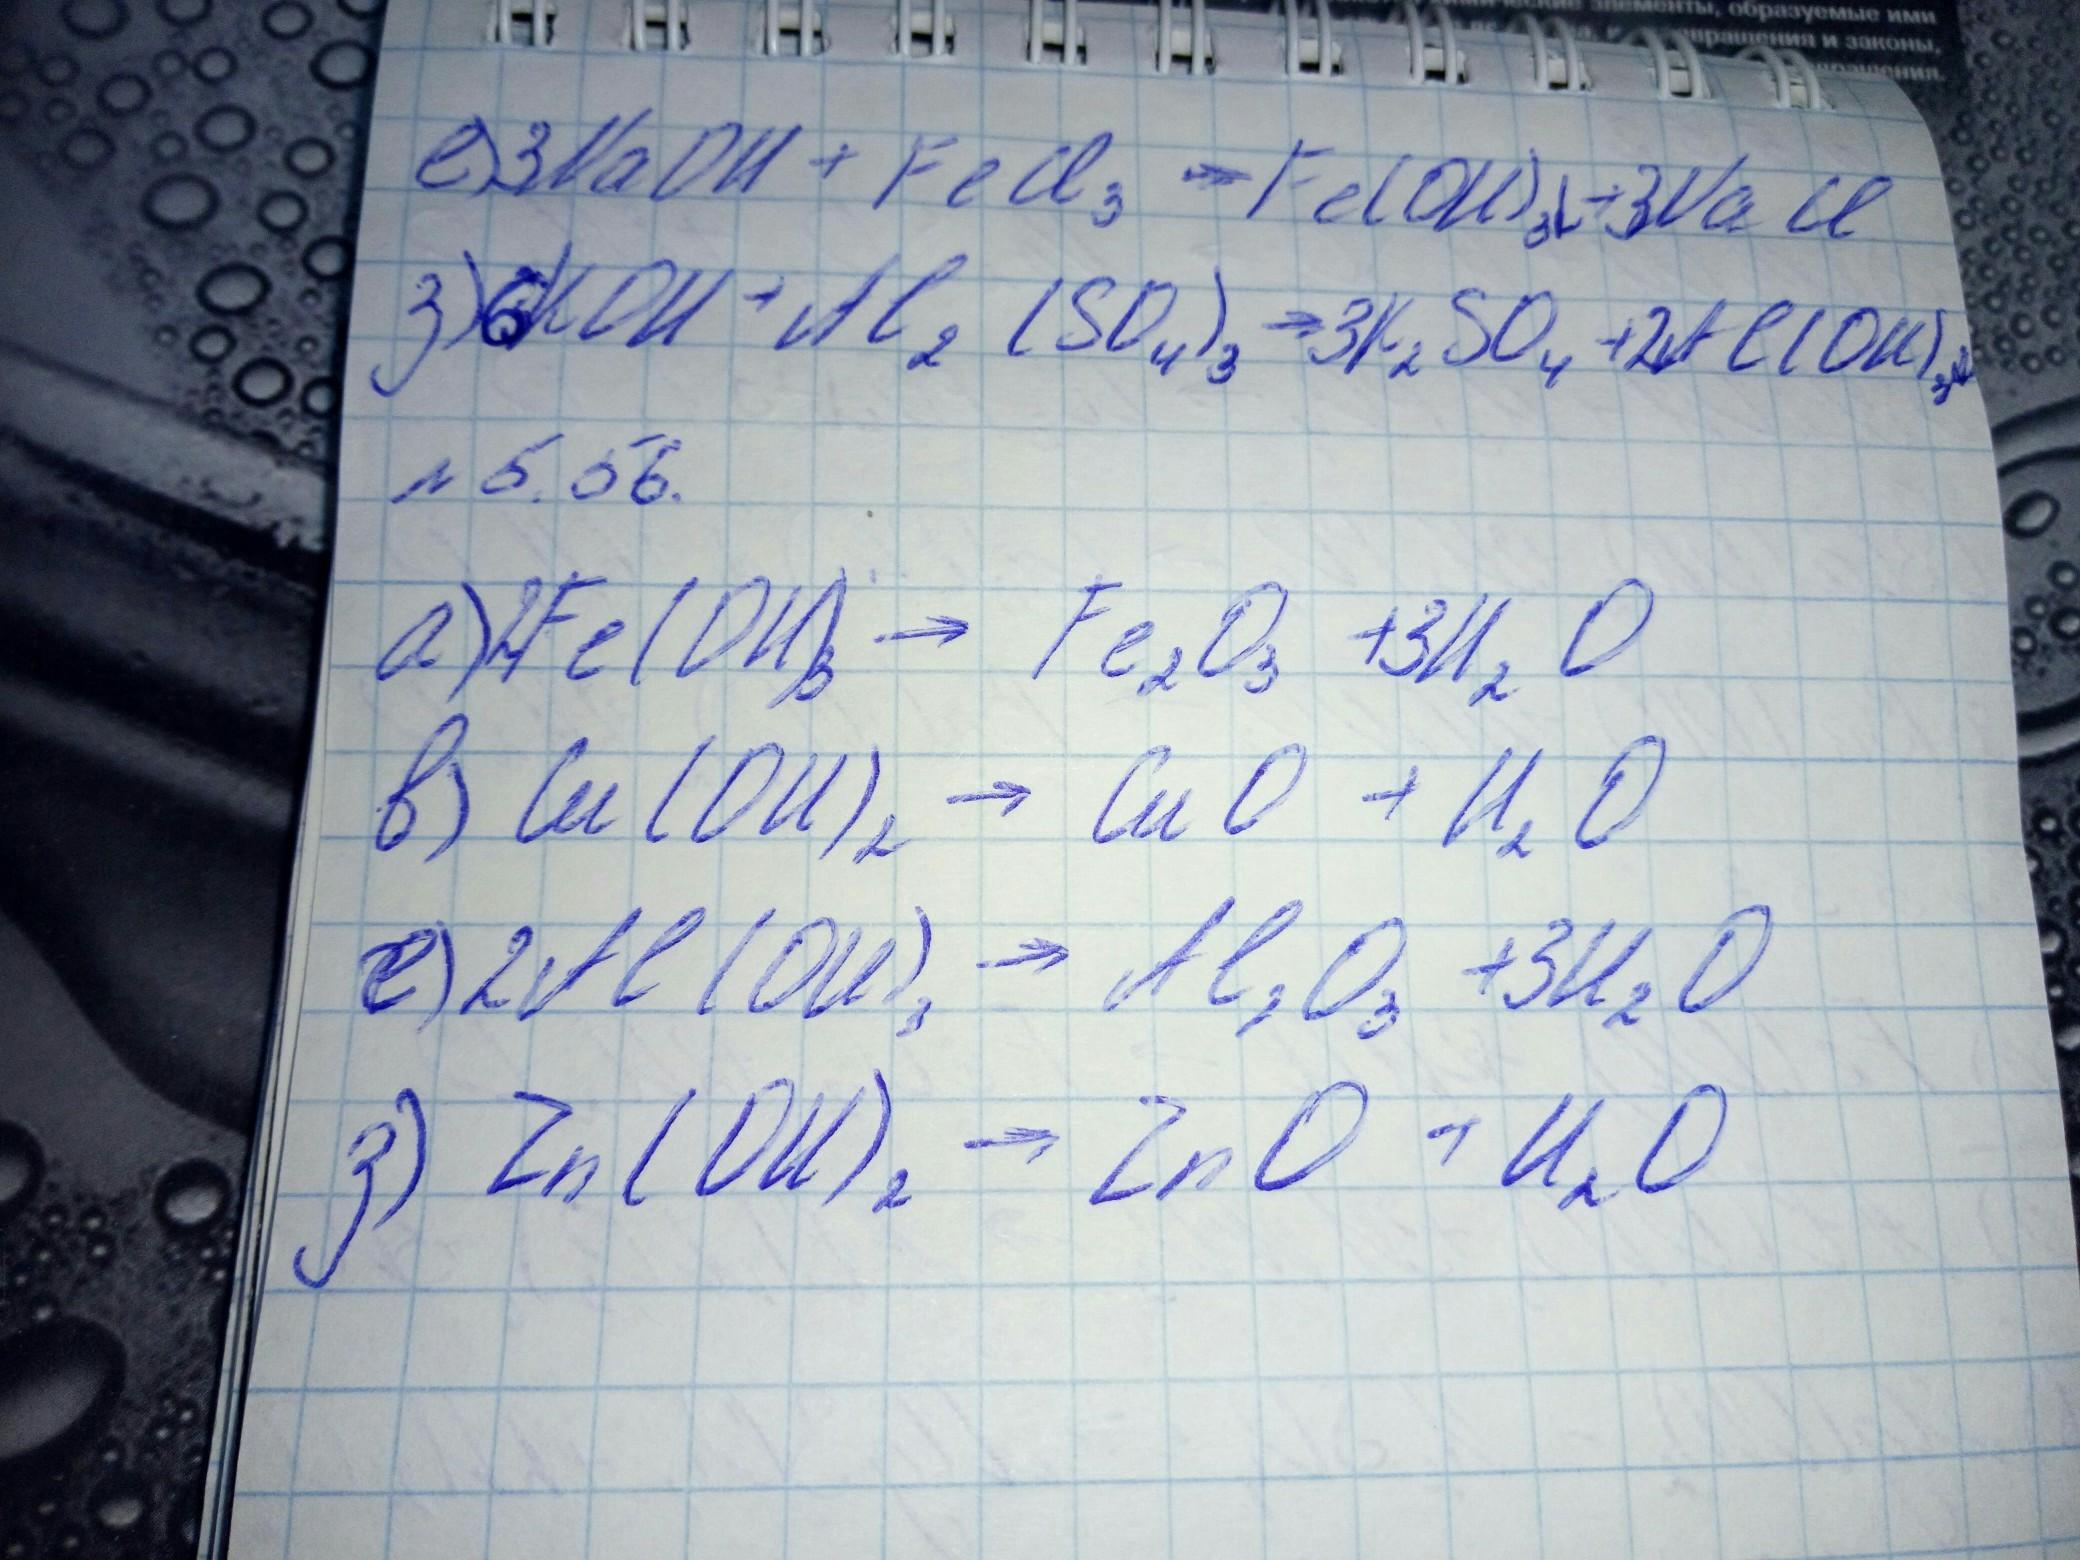 ческие элементы, образуемые ими
вращения и законы,
вращения.
е) 3NaOH + FeCl₃ → Fe(OH)₃↓ + 3NaCl
з) 6KOH + Al₂(SO₄)₃ → 3K₂SO₄ + 2Al(OH)₃↓
№ 5.56.
а) 2Fe(OH)₃ → Fe₂O₃ + 3H₂O
в) Cu(OH)₂ → CuO + H₂O
е) 2Al(OH)₃ → Al₂O₃ + 3H₂O
з) Zn(OH)₂ → ZnO + H₂O